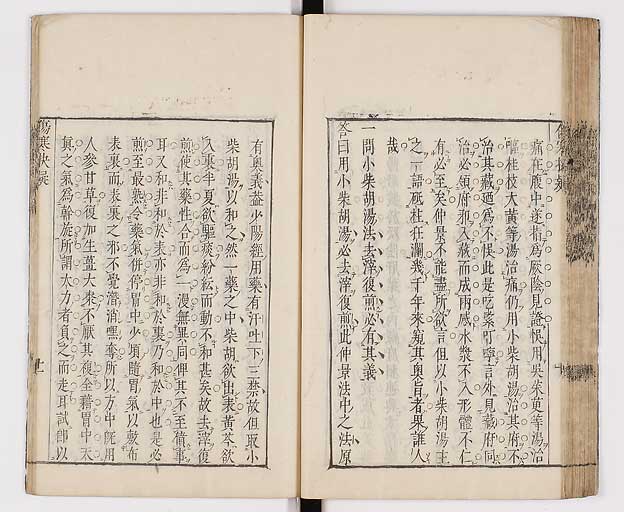 痛在腹中遂指為厥陰見證悞用吳茱萸等湯治
桂枝大黃等湯治痛仍用小柴胡湯治其府不
治其藏迺為不悞此是吃緊叮嚀言外見藏府同
治必領府邪入藏而成兩感水漿不入形體不仁
有必至矣仲景不能盡所欲言但以小柴胡湯主
之一語砥柱狂瀾幾千年來窺其奧旨者果誰人
哉
一問小柴胡湯法去滓復煎必有其義
答曰用小柴胡湯必去滓復煎此仲景法中之法原
有奧義蓋少陽經用藥有汗吐下三禁故但取小
柴胡湯以和之然一藥之中柴胡欲出表黃芩欲
入裏半夏欲驅痰紛紜而動不和甚矣故去滓復
煎使其藥性合而為一漫無異同俾其不至僨事
耳又和非和於表亦非和於裏乃和於中也是必
煎至最熟令藥氣併停胃中少頃隨胃氣以敷布
表裏而表裏之邪不覺潛消嘿奪所以方中既用
人參甘草復加生薑大棗不厭其複全藉胃中天
真之氣為斡旋所謂大力者負之而走耳試即以
傷寒抉疑
十一